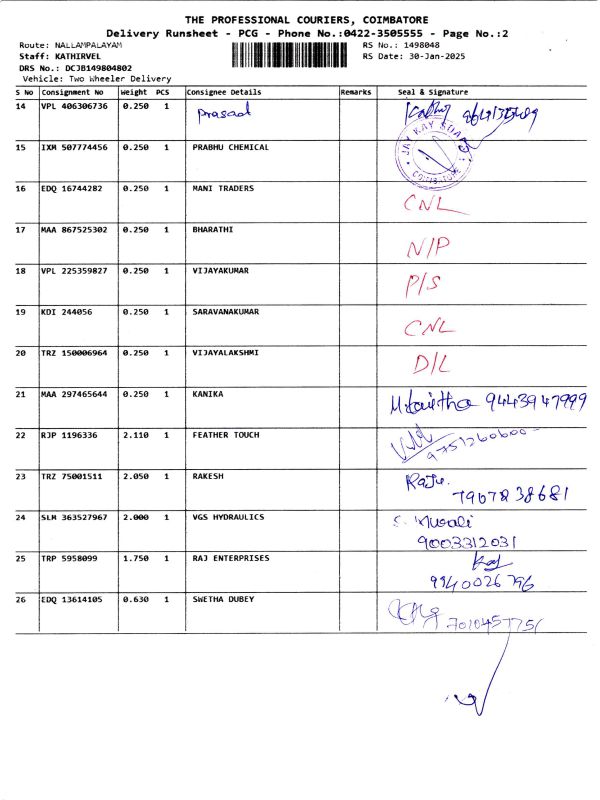 THE PROFESSIONAL COURIERS, COIMBATORE
Delivery Runsheet - PCG - Phone No.:0422-3505555 - Page No.:2
Route: NALLAMPALAYAM RS No.: 1498048
Staff: KATHIRVEL RS Date: 30-Jan-2025
DRS No.: DCJB149804802
Vehicle: Two Wheeler Delivery
S No Consignment No Weight PCS Consignee Details Remarks Seal & Signature
14 VPL 406306736 0.250 1 prasad
JAY KAY SOAP COIMBATORE
15 IXM 507774456 0.250 1 PRABHU CHEMICAL
16 EDQ 16744282 0.250 1 MANI TRADERS CNL
17 MAA 867525302 0.250 1 BHARATHI N/P
18 VPL 225359827 0.250 1 VIJAYAKUMAR P/S
19 KDI 244056 0.250 1 SARAVANAKUMAR CNL
20 TRZ 150006964 0.250 1 VIJAYALAKSHMI D/L
21 MAA 297465644 0.250 1 KANIKA 9443947999
22 RJP 1196336 2.110 1 FEATHER TOUCH 9751260600
23 TRZ 75001511 2.050 1 RAKESH Raju.
7907838681
24 SLM 363527967 2.000 1 VGS HYDRAULICS S. Murali
9003312031
25 TRP 5958099 1.750 1 RAJ ENTERPRISES Raj
9940026796
26 EDQ 13614105 0.630 1 SWETHA DUBEY